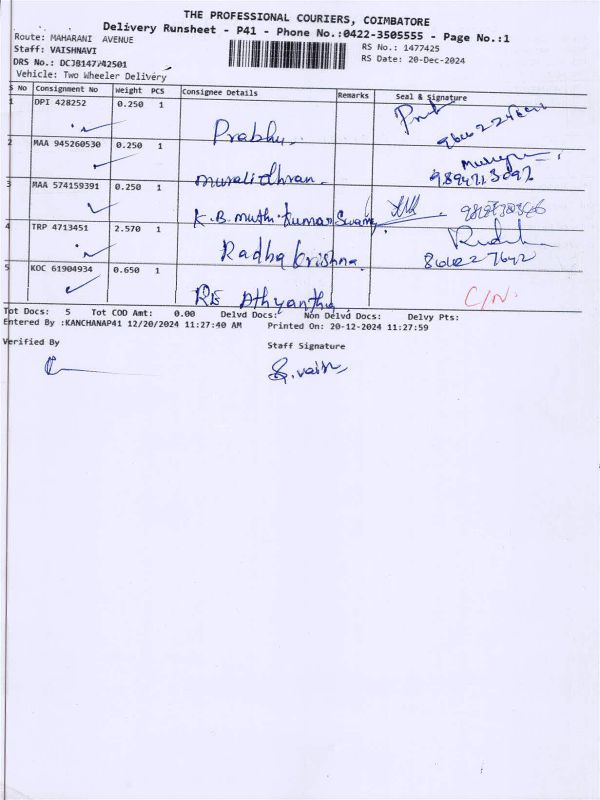 THE PROFESSIONAL COURIERS, COIMBATORE
Delivery Runsheet - P41 - Phone No.:0422-3505555 - Page No.:1
Route: MAHARANI AVENUE
RS No.: 1477425
Staff: VAISHNAVI
RS Date: 20-Dec-2024
DRS No.:
Vehicle: Two Wheeler Delivery
S No Consignment No Weight PCS Consignee Details Remarks Seal & Signature
1 DPI 428252 0.250 1
Prabhu.
2 MAA 945260530 0.250 1
muralidhran.
3 MAA 574159391 0.250 1
K.B.muthukumar Swamy
4 TRP 4713451 2.570 1
Radha krishna
5 KOC 61904934 0.650 1
C/N.
Tot Docs: 5 Tot COD Amt: 0.00 Delvd Docs: Non Delvd Docs: Delvy Pts:
Entered By :KANCHANAP41 12/20/2024 11:27:40 AM Printed On: 20-12-2024 11:27:59
Verified By
Staff Signature
S.vaish